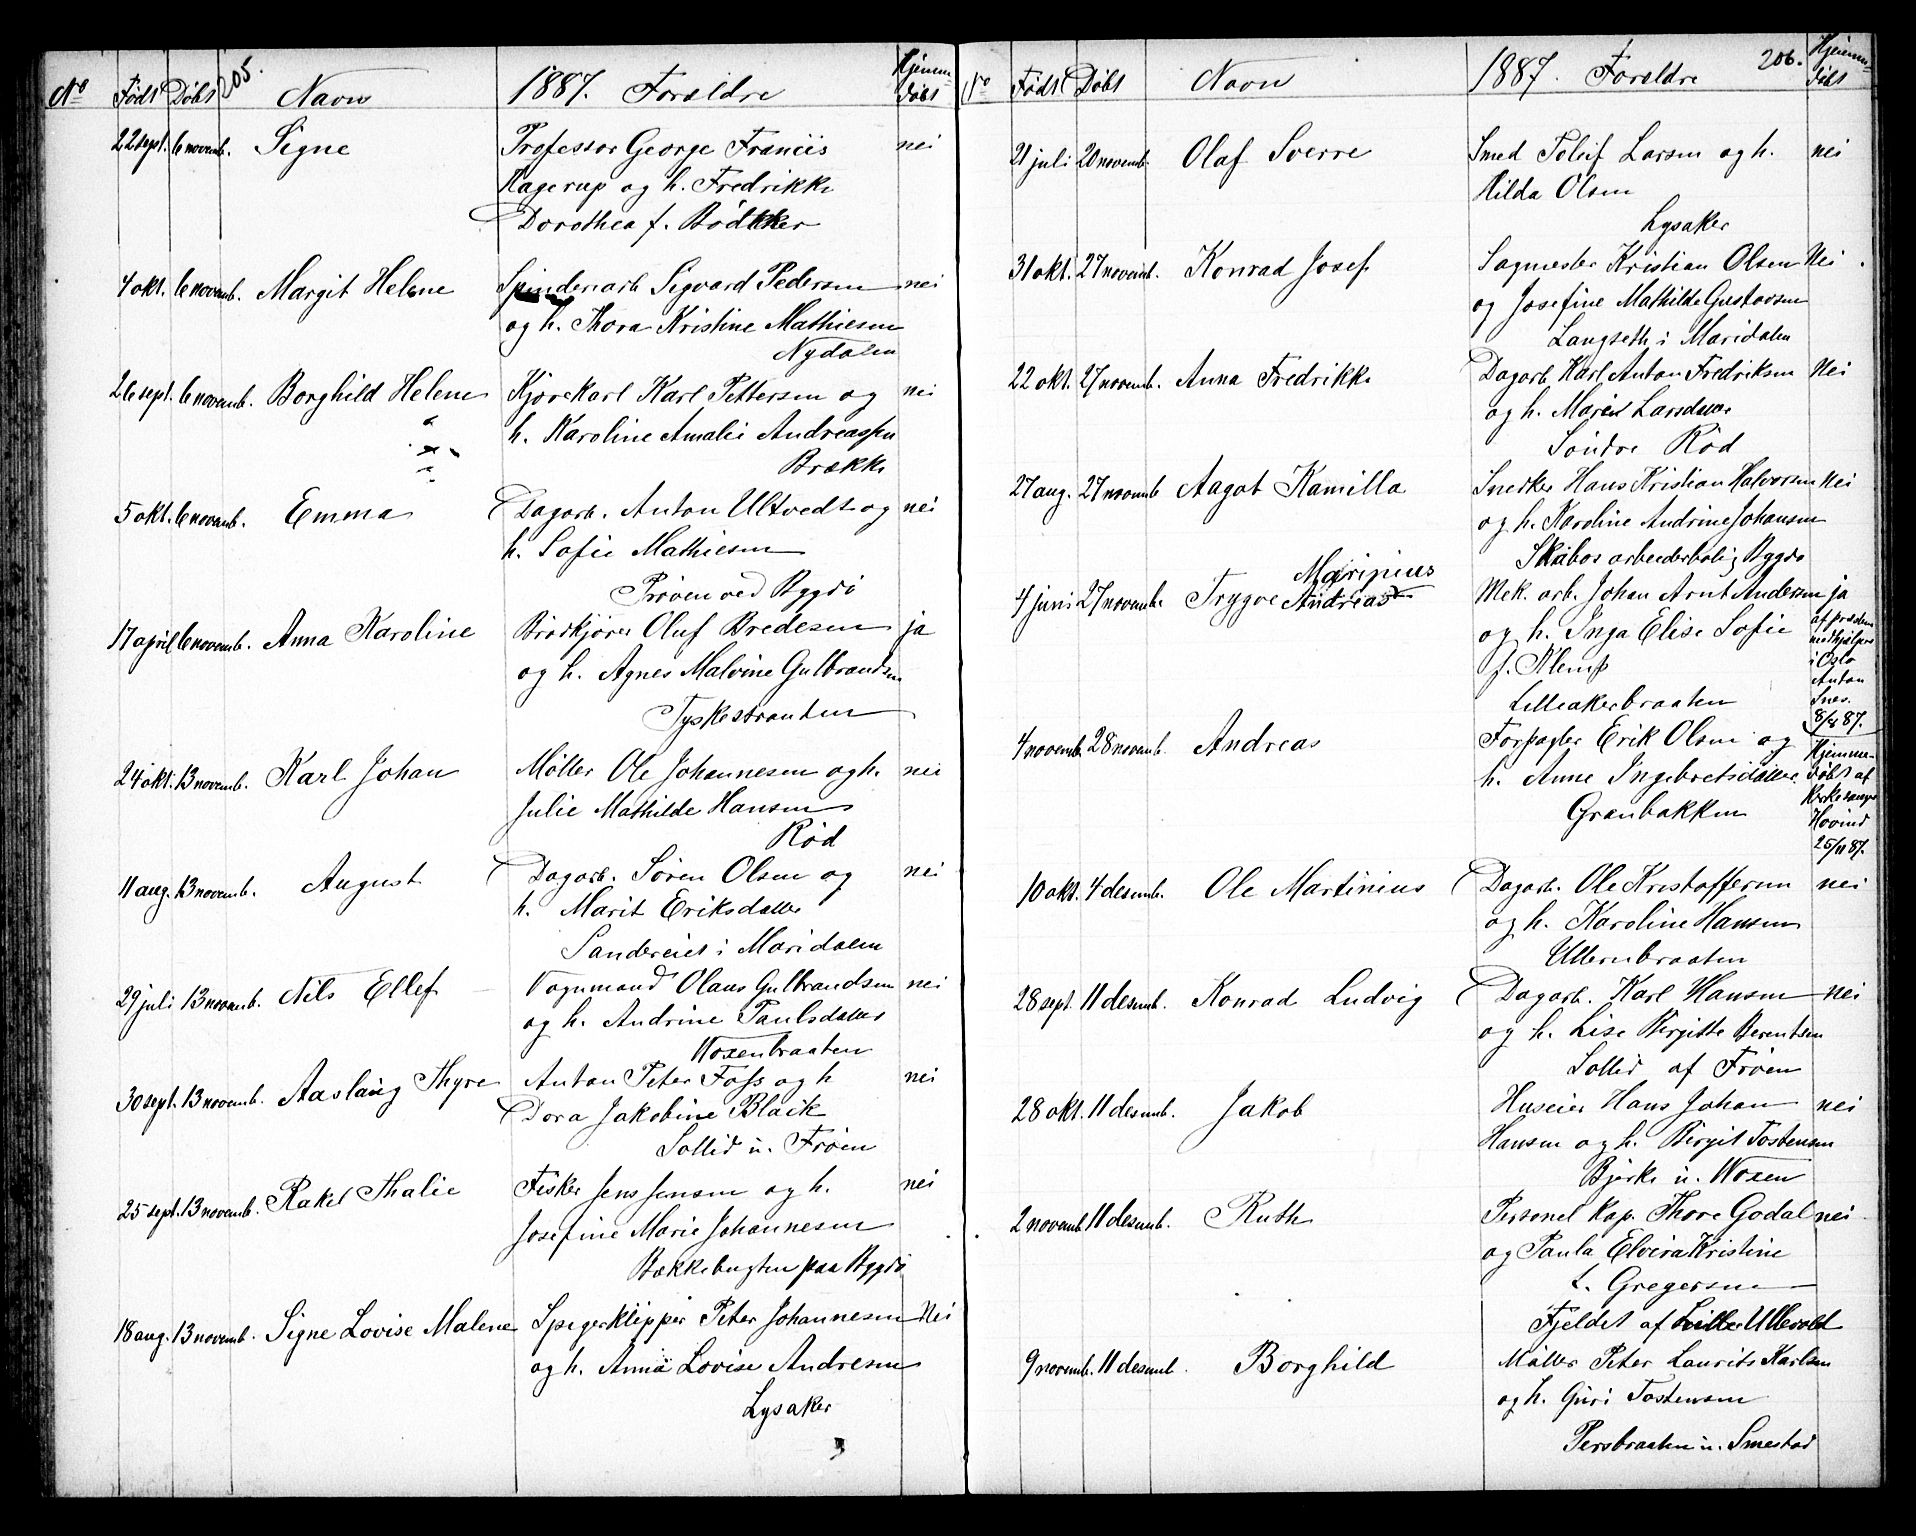 No Født Døbt 205. Navn 1887. Foreldre Hjemmedøbt
22 sept. 6 novemb. Signe Professor George Francis nei
Hagerup og h. Fredrikke
Dorothea f. Bødtker
4 okt. 6 novemb. Margit Helene Spinderiarb. Sigvard Pedersen nei
og h. Thora Kristine Mathiesen
Nydalen
26 sept. 6 novemb. Borghild Helene Kjørekarl Karl Pettersen og nei
h. Karoline Amalie Andreassen
Brække
5 okt. 6 novemb. Emma Dagarb. Anton Ultvedt og nei
h. Sofie Mathiesen
Prøven ved Bygdø
17 april 6 novemb. Anna Karoline Brødkjører Oluf Bredesen ja
og h. Agnes Malvine Gulbrandsen
Tyskestranden
24 okt. 13 novemb. Karl Johan Møller Ole Johannesen og h. nei
Julie Mathilde Hansen
Rød
11 aug. 13 novemb. August Dagarb. Søren Olsen og nei
h. Marit Eriksdatter
Sandereiet i Maridalen
29 juli 13 novemb. Nils Ellef Vognmand Olaus Gulbrandsen nei
og h. Andrine Paulsdatter
Voxenbraaten
30 sept. 13 novemb. Aaslaug Thyre Anton Peter Foss og h nei
Dora Jakobine Blaik
Sollid u. Frøen
25 sept. 13 novemb. Rakel Thalie Fisker Jens Jensen og h. nei
Josefine Marie Johannesen
Bækkebugten paa Bygdø
18 aug. 13 novemb. Signe Lovise Malene Spigerklipper Peter Johannesen Nei
og h. Anna Lovise Andresen
Lysaker
No Født Døbt Navn 1887. Foreldre 206. Hjemmedøbt
21 juli 20 novemb. Olaf Sverre Smed Tolleif Larsen og h. nei
Hilda Olsen
Lysaker
31 okt. 27 novemb. Konrad Josef Sagmester Kristian Olsen Nei
og Josefine Mathilde Gustavsen
Langseth i Maridalen
22 okt. 27 novemb. Anna Fredrikke Dagarb. Karl Anton Fredriksen Nei
og h. Maren Larsdatter
Søndre Rød
27 aug. 27 novemb Aagot Kamilla Snedker Hans Kristian Halvorsen Nei
og h. Karoline Andrine Johansen
Skabos arbeiderbolig Bygdø
Maripius
4 juni 27 novemb. Trygve Andreas Mek. arb. Johan Arnt Andersen ja
og h. Inga Elise Sofie
f. Klemp
Lilleakerbraaten
af præstens
medhjælper
i Oslo
Anton
Snes.
8/8 87.
4 novemb. 28 novemb. Andreas Forpagter Erik Olsen og
h. Anne Ingebretsdatter
Granbakken
Hjemmedøbt af
Kirkesanger
Hovind
25/11 87.
10 okt. 4 desemb. Ole Martinius Dagarb. Ole Kristoffersen nei
og h. Karoline Hansen
Ullernbraaten
28 sept. 11 desemb. Konrad Ludvig Dagarb. Karl Hansen nei
og h. Lise Birgitte Berentsen
Sollid af Frøen
28 okt. 11 desemb. Jakob Huseier Hans Johan nei
Hansen og h. Birgit Tostensen
Bjerke u. Voxen
2 novemb. 11 desemb. Ruth Personel Kap. Thore Godal nei
og Paula Elvira Kristine
f. Gregersen
Fjeldet af Lille Ullevold
9 novemb. 11 desemb. Borghild Møller Peter Laurits Karlsen
og h. Guri Tostensen
Persbraaten u. Smestad